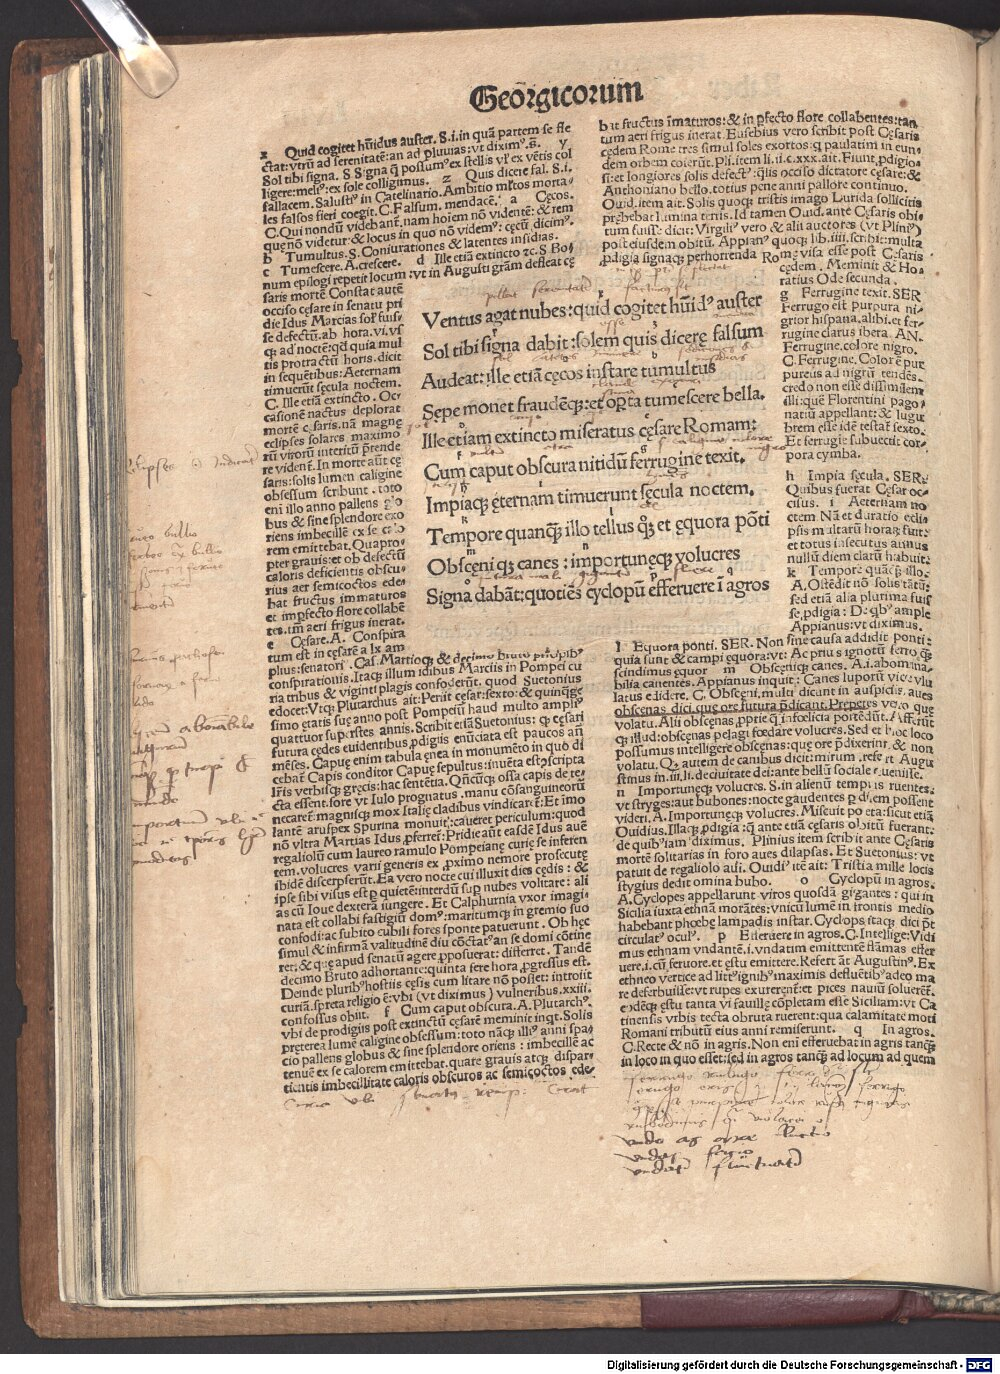 Geõrgicorum
x Quid cogitet hũidus auster. S. i. in quã partem se fle
ctat: vtrũ ad serenitatẽ: an ad pluuias: vt diximꝰ. ã. y
Sol tibi signa. S Signa q̃ possumꝰ ex stellis vľ ex vẽtis col
ligere: meliꝰ: ex sole colligimus. z Quis dicere fal. S. i.
fallacem. Salustꝰ in Catelinario. Ambitio mľtos morta-
les falsos fieri coegit. C. Falsum. mendacẽ. a Cęcos.
C. Qui nondũ videbanť. nam hoiem nõ videntẽ: & rem
quę nõ videtur: & locus in quo nõ videmꝰ: cęcũ dicimꝰ.
b Tumultus. S. Coniurationes & latentes insidias.
c Tumescere. A. crescere. d Ille etiã extincto ⁊c. S Bo-
num epilogi repetit locum: vt in Augusti grãm defleat cę
saris mortẽ Constat autẽ
occiso cęsare in senatu pri
die Idus Marcias
se defectũ. ab hora. vi. vsꝗ
ad noctẽ: qđ quia mul
tis protractũ horis. dicit
in sequẽtibus: Aeternam
timuerũt sęcula noctem.
C. Ille etiã extincto. Oc-
casionẽ nactus deplorat
mortẽ cęsaris. nã magnę
eclipses solares. maximo
rũ virorũ interitũ prẽtende
re videnť. In morte aũt cę
saris: solis lumen caligine
obsessum scribunt. toto
eni illo anno pallens glo
bus & sine splendore exo
riens imbecillẽ ex se calo
rem emittebat. Quapro-
pter grauis: et ob defectũ
caloris deficientis obscu
rius aer semicoctos ede-
bat fructus immaturos
et imperfecto flore collabẽ
tes. tm̃ aeri frigus inerat.
e Cęsare. A. Conspira
tum est in cęsarẽ a lx am
plius: senatori. Cas. Martioꝗ & decimo bruto pricipibꝰ
conspirationis. Itaꝗ illum idibus Marciis in Pompei cu
ria tribus & viginti plagis confoderũt. quod Suetonius
edocet: Vtꝗ Plutarchus ait: Periit cęsar: sexto: & quinq̃ge
simo ętatis suę anno post Pompeiũ haud multo ampliꝰ
quattuor superstes annis. Scribit etiã Suetonius: ꝙ cęsari
futura cędes euidentibus prodigiis enũciata est paucos añ
mẽses. Capuę enim tabula ęnea in monumẽto in quo di
cebať Capis conditor Capuę sepultus: inuẽta est: cõscripta
lr̃is verbisꝗ gręcis: hac sententia. Qñcũꝗ ossa capis dete-
cta essent. fore vt Iulo prognatus. manu cõsanguineorũ
necareť: magnisꝗ mox Italię cladibus vindicareť: Et imo
lantẽ aruspex Spurina monuit: caueret periculum: quod
nõ vltra Martias Idus proferret: Pridie aũt easdẽ Idus auẽ
regaliolũ cum laureo ramulo Pompeianę curię se inferen
tem. volucres varii generis ex proximo nemore prosecutę
ibidẽ discerpserũt. Ea vero nocte cui illuxit dies cędis: &
ipse sibi visus est p quietẽ: interdũ supra nubes volitare: ali
as cũ Ioue dexterã iungere. Et Calphurnia vxor imagi
nata est collabi fastigiũ domꝰ: maritumꝗ in gremio suo
confodi: ac subito cubili fores sponte patuerunt. Ob hęc
simul & infirmã valitudinẽ diu cõctatꝰ an se domi cõtine
ret: & quę apud senatũ agere proposuerat: differret. Tandẽ
decimo Bruto adhortante: quinta fere hora progressus est.
Deinde pluribꝰ hostiis cęsis cum litare nõ posset: introiit
curiã. spreta religio ẽ: vbi (vt diximus) vulneribus. xxiii.
confossus obiit. f Cum caput obscura. A. Plutarchꝰ.
vbi de prodigiis post extinctũ cęsarẽ meminit inqt. Solis
pręterea lumẽ caligine obsessum: toto nãꝗ illiꝰ anni spa-
cio pallens globus & sine splendore oriens: imbecillẽ ac
tenuẽ ex se calorem emittebat. quare grauis atꝗ dispar-
tientis imbecillitate caloris obscuros ac semicoctos ede-
Ventus agat nubes: quid cogitet hũidꝰ auster
Sol tibi signa dabit: solem quis dicere falsum
Audeat: ille etiã cęcos instare tumultus
Sępe monet fraudẽꝗ: et opta tumescere bella.
Ille etiam extincto miseratus cęsare Romam:
Cum caput obscura nitidũ ferrugine texit.
Impiaꝗ ęternam timuerunt sęcula noctem.
Tempore quanꝗ̃ illo tellus qꝫ et ęquora põti
Obscęni qꝫ canes: importunęꝗ volucres
Signa dabãt: quotiẽs cyclopũ efferuere ĩ agros
bãt fructus ĩmaturos: & in ꝑfecto flore collabentes: tan
tum aeri frigus inerat. Eusebius vero scribit post Cęsaris
cędem Rome tres simul soles exortos: ꝗ paulatim in eun-
dem orbem coierũt. Pli. item li. ii. c. xxx. ait. Fiunt prodigio
si: et longiores solis defectꝰ: q̃lis occiso dictatore cęsare: &
Anthoniano bello. totius pene anni pallore continuo.
Ouid. item ait. Solis quoꝗ: tristis imago Lurida sollicitis
pręhebat lumina terris. Id tamen Ouid. ante Cęsaris obi-
tum fuisse: dicit: Virgiliꝰ vero & alii auctores (vt Pliniꝰ)
post eiusdem obitũ. Appianꝰ quoꝗ lib. iiii. scribit: multa
prodigia signaꝗ perhorrenda Romę visa esse post Cęsaris
cędem. Meminit & Ho-
ratius Ode secunda.
g Ferrugine texit. SER
Ferrugo est purpura ni-
grior hispana. alibi. et fer-
rugine clarus ibera. AN.
Ferrugine. colore nigro.
C. Ferrugine. Colore pur
pureus ad nigrũ tendẽs.
credo non esse dissimilem
illi: quẽ Florentini pago
natiũ appellant: & lugu
brem esse idẽ testať sexto.
Et ferrugie subuectit cor-
pora cymba.
h Impia sęcula. SER.
Quibus fuerat Cęsar oc-
cisus. i Aeternam no
ctem Nã et duratio ecli-
psis multarũ horarũ fuit:
et totus insecutus annus
nullũ diem clarũ habuit:
k Tempore quãꝗ: illo.
A. Ostẽdit nõ solis tãtũ:
sed etiã alia plurima fuis
se prodigia: De qbꝰ ample
Appianus: vt diximus.
l Equora ponti. SER. Non sine causa addidit ponti:
quia sunt & campi ęquora: vt: Ac prius ignotũ ferro quã
scindimus ęquor m Obscęniꝗ canes. A. i. abomina-
bilia canentes. Appianus inquit: Canes luporũ vice vlu
latus edidere. C. Obscęni. multi dicunt in auspiciis. aues
obscęnas dici quę ore futura prędicant. Prępetes vero que
volatu. Alii obscęnas. proprie q̃ infœlicia portẽdũt. Afferũt
ꝗ illud: obscęnas pelagi fœdare volucres. Sed et hoc loco
possumus intelligere obscęnas: que ore prędixerint. & non
volatu. Qꝫ autem de canibus dicit: mirum. refert Augu
stinus in. iii. li. de ciuitate dei: ante bellũ sociale euenisse.
n Importunęꝗ volucres. S. in alienũ tempus ruentes:
vt stryges: aut bubones: nocte gaudentes per diem possent
videri. A. Importunęꝗ volucres. Miscuit poeta: sicut etiã
Ouidius. Illaꝗ prodigia: q̃ ante etiã cęsaris obitũ fuerant:
de quibꝰ iam diximus. Plinius item scribit ante Cęsaris
mortẽ solitarias in foro aues dilapsas. Et Suetonius: vt
patuit de regaliolo aui. Ouidiꝰ itẽ ait: Tristia mille locis
stygius dedit omina bubo. o Cyclopũ in agros.
A. Cyclopes appellarunt viros quosdã gigantes: qui in
Sicilia iuxta ethnã morãtes: vnicũ lumẽ in frontis medio
habebant phœbę lampadis instar. Cyclops itaꝗ dici põt
circulatꝰ oculꝰ. p Efferuere in agros. C. Intellige: Vidi
mus ethnam vndantẽ. i. vndatim emittentẽ flãmas effer
uere. i. cũ feruore. et ęstu emittere. Refert ãt Augustinꝰ. Ex
ethneo vertice ad littꝰ ignibꝰ maximis defluẽtibꝰ adeo ma
re deferbuisse: vt rupes exurerenť: et pices nauiũ soluerẽt.
eodẽꝗ: ęstu tanta vi fauillę cõpletam esse Siciliam: vt Ca
tinensis vrbis tecta obruta ruerent: qua calamitate moti
Romani tributũ eius anni remiserunt. q In agros.
C. Recte & nõ in agris. Non eni efferuebat in agris tanꝗ
in loco in quo esset: sed in agros tanꝗ̃ ad locum ad quem
Digitalisierung gefördert durch die Deutsche Forschungsgemeinschaft - DFG